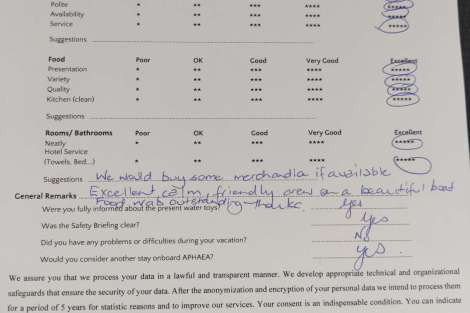 Polite * ** *** **** *****
Availability * ** *** **** *****
Service * ** *** **** *****
Suggestions
Food Poor OK Good Very Good Excellent
Presentation * ** *** **** *****
Variety * ** *** **** *****
Quality * ** *** **** *****
Kitchen (clean) * ** *** **** *****
Suggestions
Rooms/ Bathrooms Poor OK Good Very Good Excellent
Neatly * ** *** **** *****
Hotel Service
(Towels, Bed...) * ** *** **** *****
Suggestions We would buy some merchandia if available
General Remarks Excellent calm, friendly crew on a beautiful boat
Food was outstanding - thanks.
Were you fully informed about the present water toys? Yes
Was the Safety Briefing clear? Yes
Did you have any problems or difficulties during your vacation? No
Would you consider another stay onboard APHAEA? Yes.
We assure you that we process your data in a lawful and transparent manner. We develop appropriate technical and organizational
safeguards that ensure the security of your data. After the anonymization and encryption of your personal data we intend to process them
for a period of 5 years for statistic reasons and to improve our services. Your consent is an indispensable condition. You can indicate